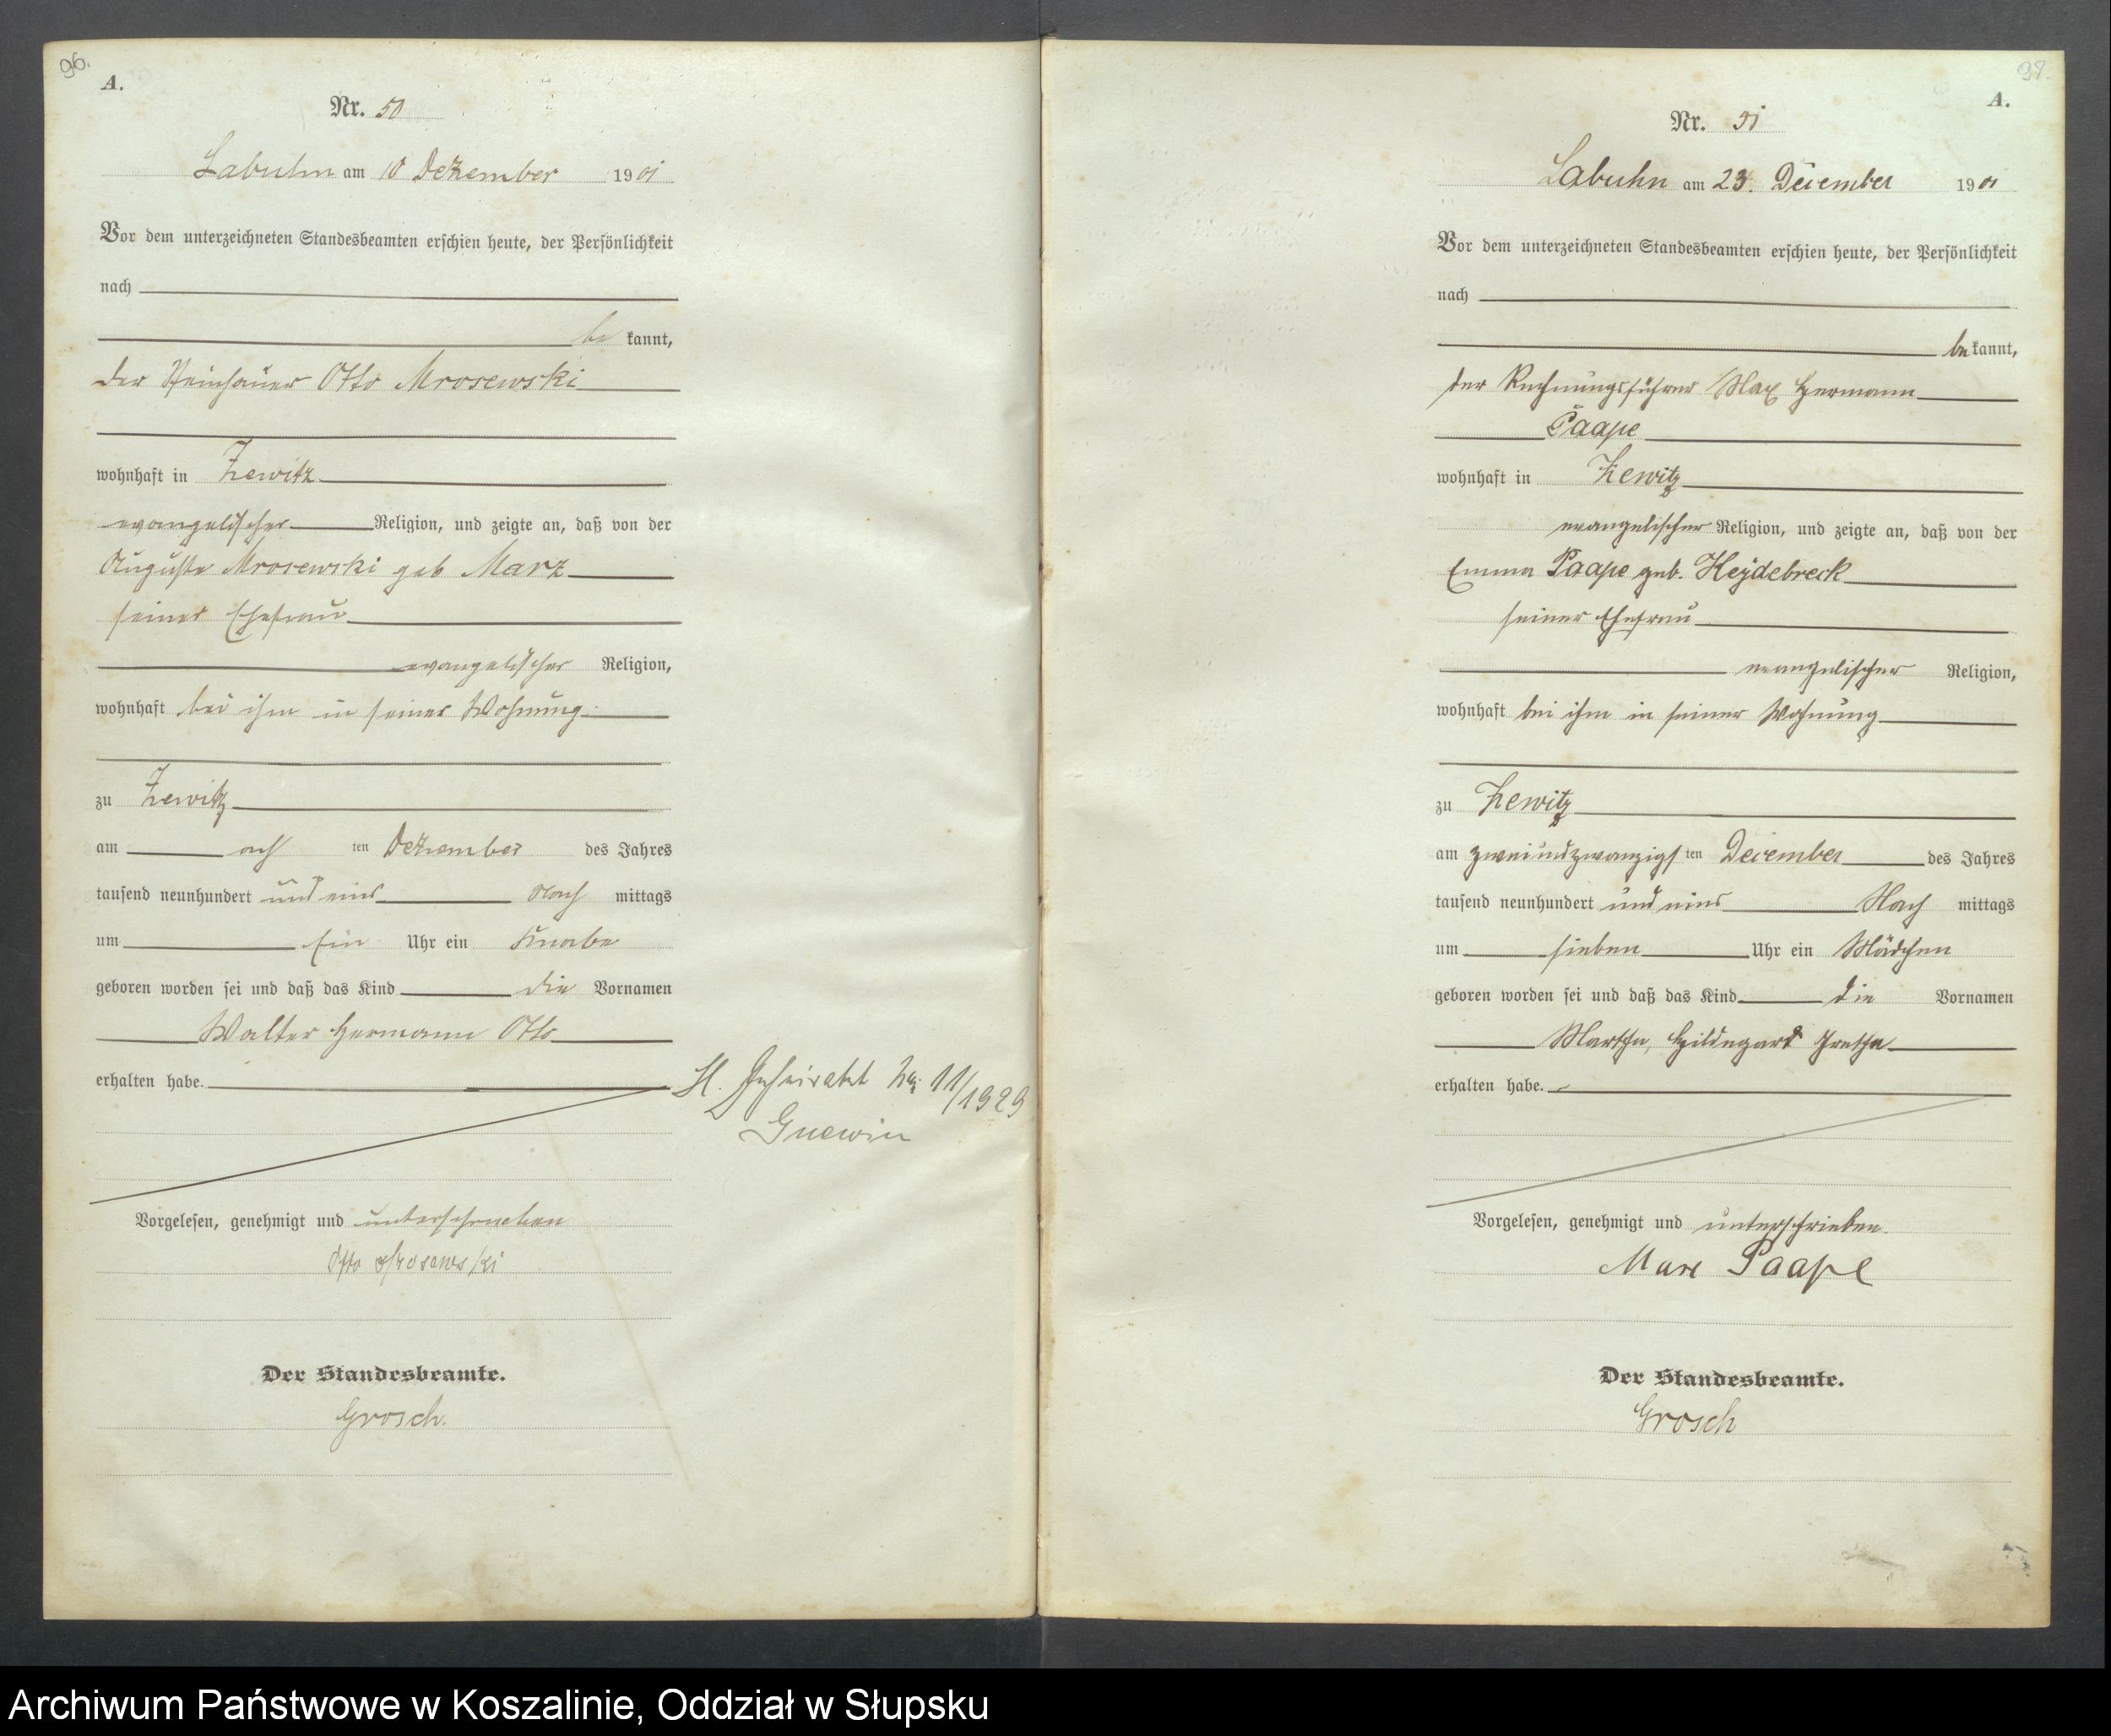 96.
A.
Nr. 50
Labuhn am 10 Dezember 1901
Vor dem unterzeichneten Standesbeamten erschien heute, der Persönlichkeit
nach
be kannt,
der Steinhauer Otto Mrosewski
wohnhaft in Zewitz
evangelischer Religion, und zeigte an, daß von der
Auguste Mrosewski geb Marz
seiner Ehefrau
evangelischer Religion,
wohnhaft bei ihm in seiner Wohnung
zu Zewitz
am ach ten Dezember des Jahres
tausend neunhundert und eins Nach mittags
um Ein Uhr ein Knabe
geboren worden sei und daß das Kind die Vornamen
Walter Hermann Otto
erhalten habe.
H. Geheiratet Nr. 11/1929
Gnewin
Vorgelesen, genehmigt und unterschrieben
Otto Mrosewski
Der Standesbeamte.
Grosch.
97.
A.
Nr. 51
Labuhn am 23. December 1901
Vor dem unterzeichneten Standesbeamten erschien heute, der Persönlichkeit
nach
be kannt,
der Rechnungsführer Max Hermann
Paape
wohnhaft in Zewitz
evangelischer Religion, und zeigte an, daß von der
Emma Paape geb. Heydebreck
seiner Ehefrau
evangelischer Religion,
wohnhaft bei ihm in seiner Wohnung
zu Zewitz
am zweiundzwanzigs ten December des Jahres
tausend neunhundert und eins Nach mittags
um sieben Uhr ein Mädchen
geboren worden sei und daß das Kind die Vornamen
Martha, Hildegard Gretha
erhalten habe.
Vorgelesen, genehmigt und unterschrieben.
Max Paape
Der Standesbeamte.
Grosch
Archiwum Państwowe w Koszalinie, Oddział w Słupsku